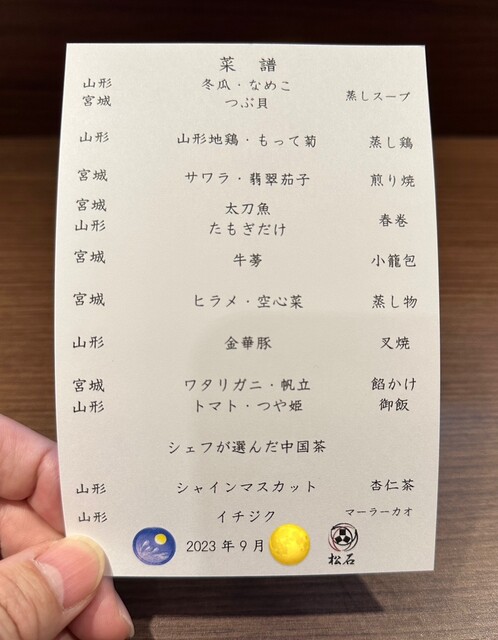 菜譜
山形 冬瓜・なめこ
宮城 つぶ貝 蒸しスープ
山形 山形地鶏・もって菊 蒸し鶏
宮城 サワラ・翡翠茄子 煎り焼
宮城 太刀魚
山形 たもぎだけ 春巻
宮城 牛蒡 小籠包
宮城 ヒラメ・空心菜 蒸し物
山形 金華豚 叉焼
宮城 ワタリガニ・帆立 餡かけ
山形 トマト・つや姫 御飯
シェフが選んだ中国茶
山形 シャインマスカット 杏仁茶
山形 イチジク マーラーカオ
2023年9月
松石